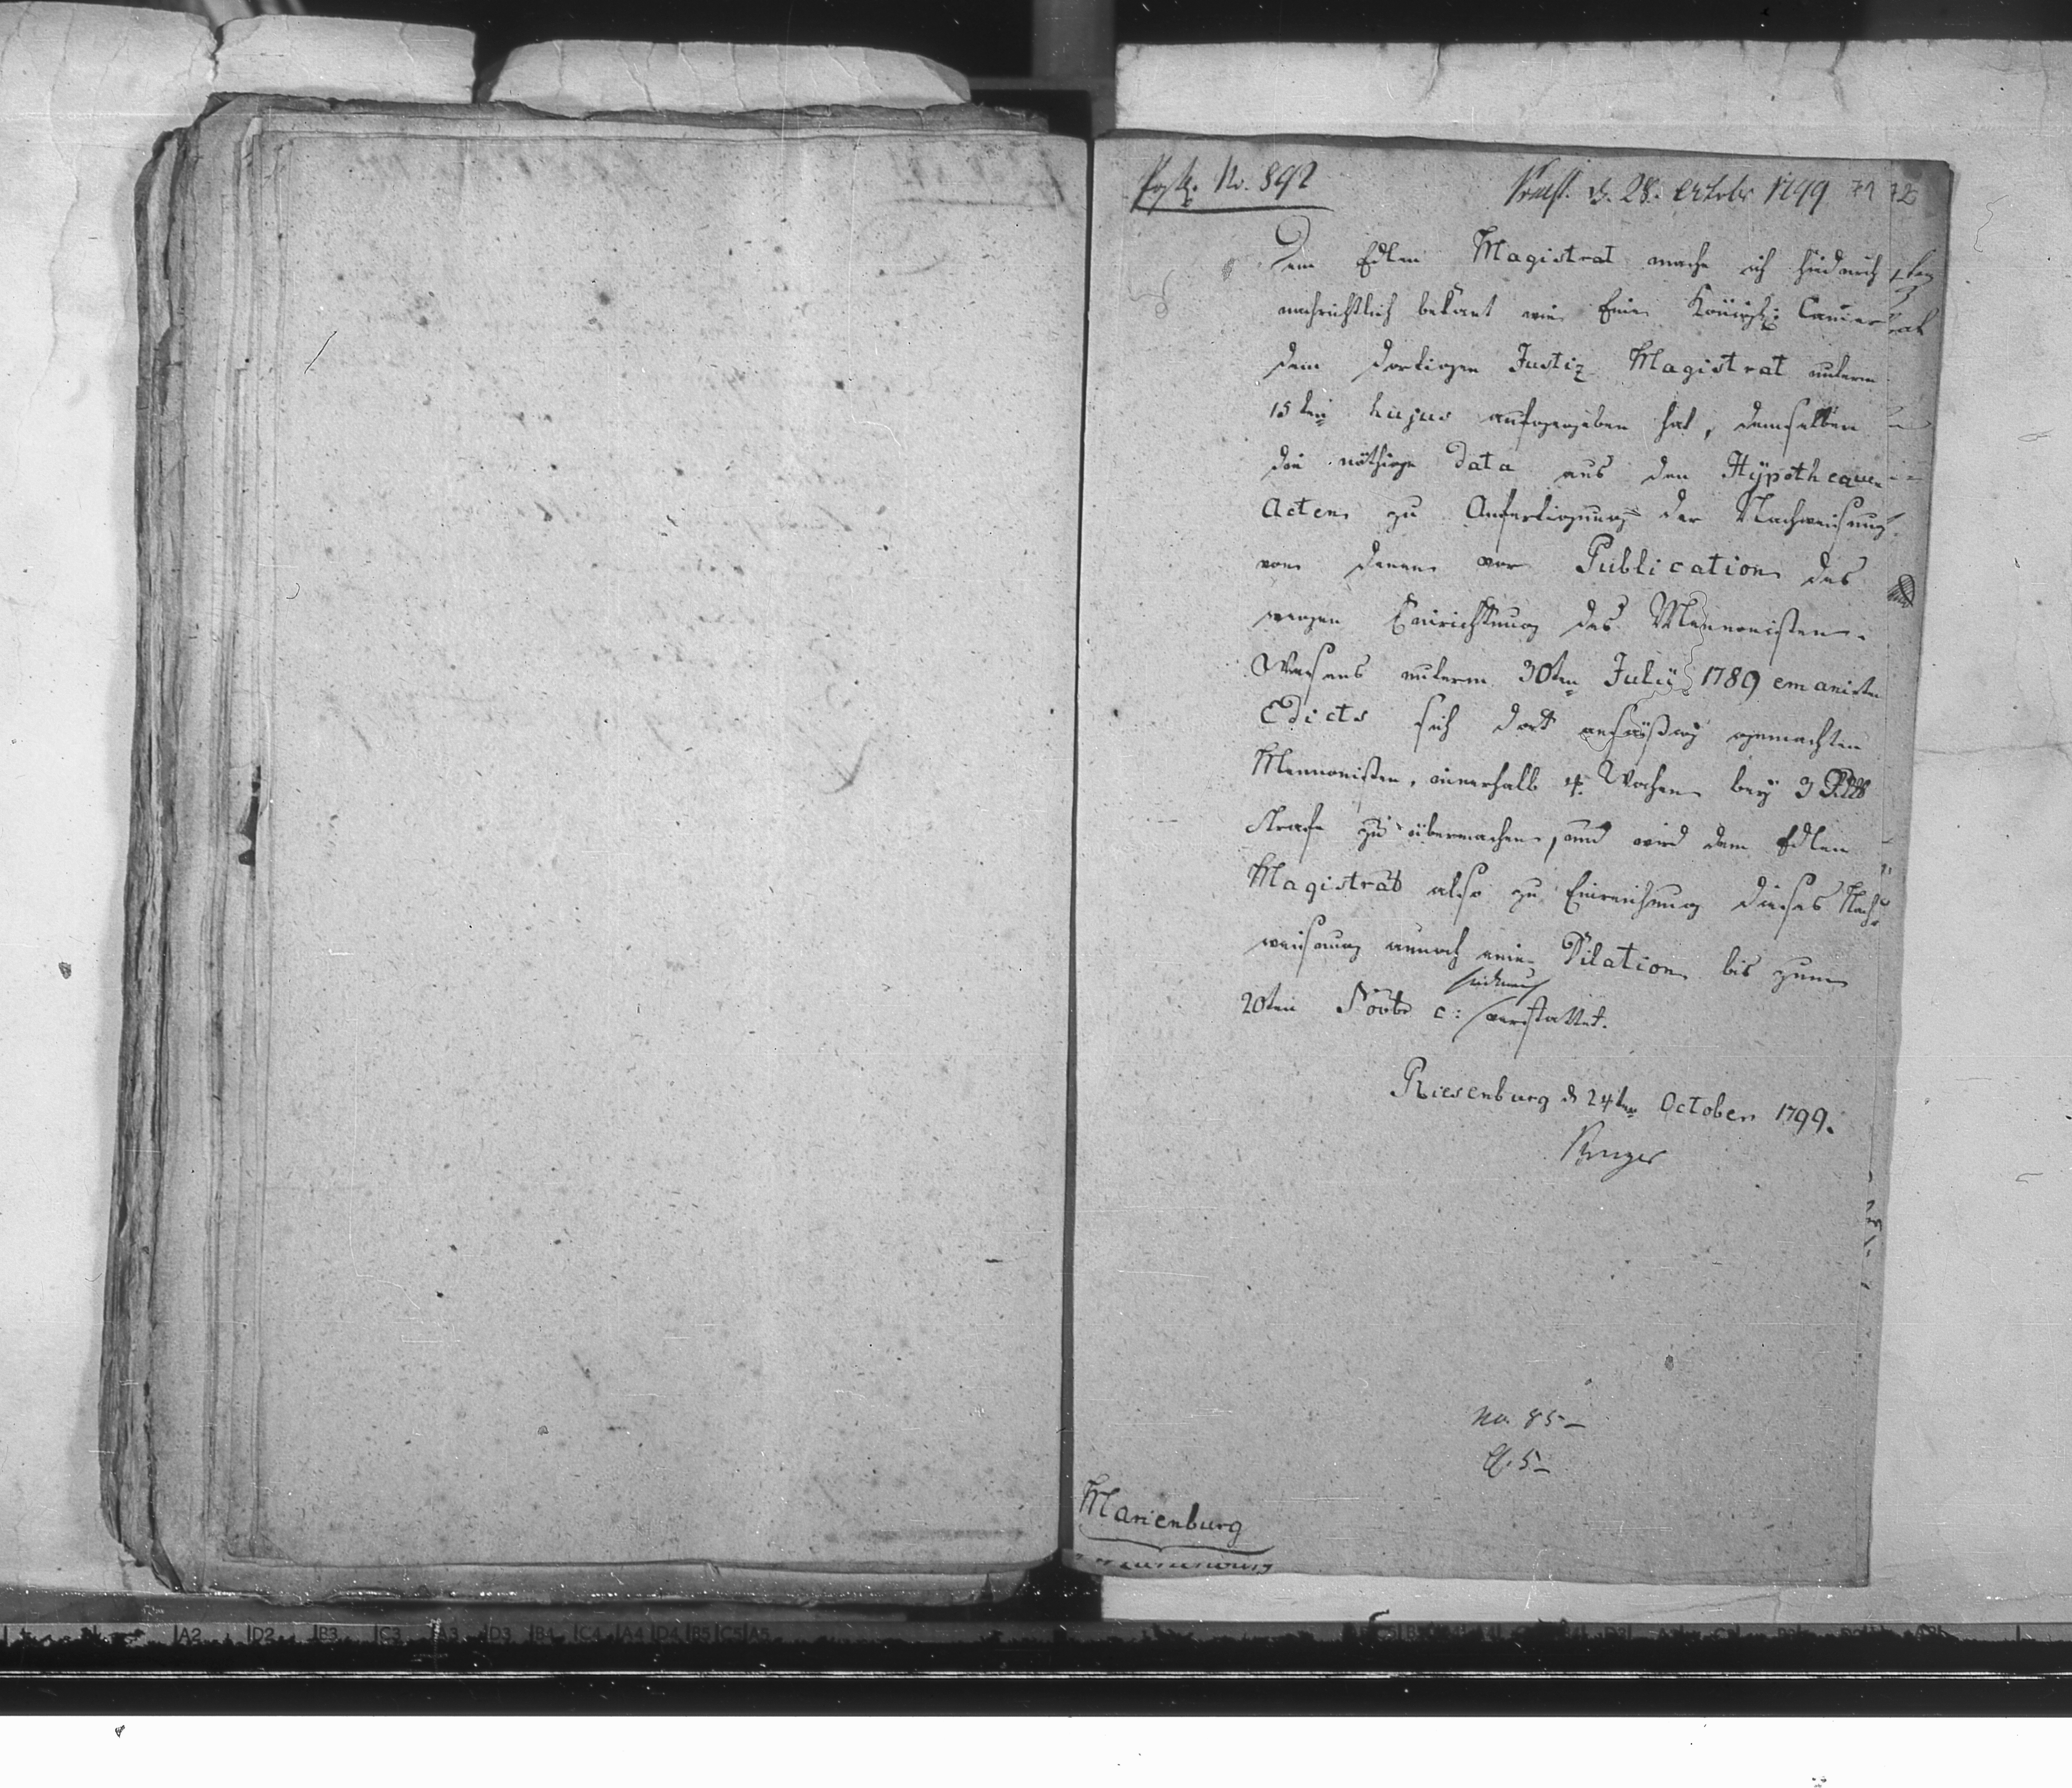 No. 892
Praes. d. 28. Octobr 1799 71 72
Dem Edlen Magistrat mache ich hiedurch
nachrichtlich bekant wie Eine Königl: Camer
dem dortigen Justiz Magistrat unterm
15ten hujus aufgegeben hat, demselben
die nöthige Data aus den Hypothequen
Acten zu Anfertigung der Nachweisung
von denen vor Publication des
wegen Einrichtung des Mennonisten-
Wesens unterm 30ten Julii 1789 emanirten
Edicts sich dort ansäßig gemachten
Mennonisten, innerhalb 4 Wochen bey 3 Rtlr
Strafe zu übermachen, und wird dem Edlen
Magistrat also zu Einreichung dieser Nach-
weisung annoch eine Dilation bis zum
20ten Novbr c: verstattet.
Riesenburg d 24ten October 1799.
No. 85-
5-
Marienburg